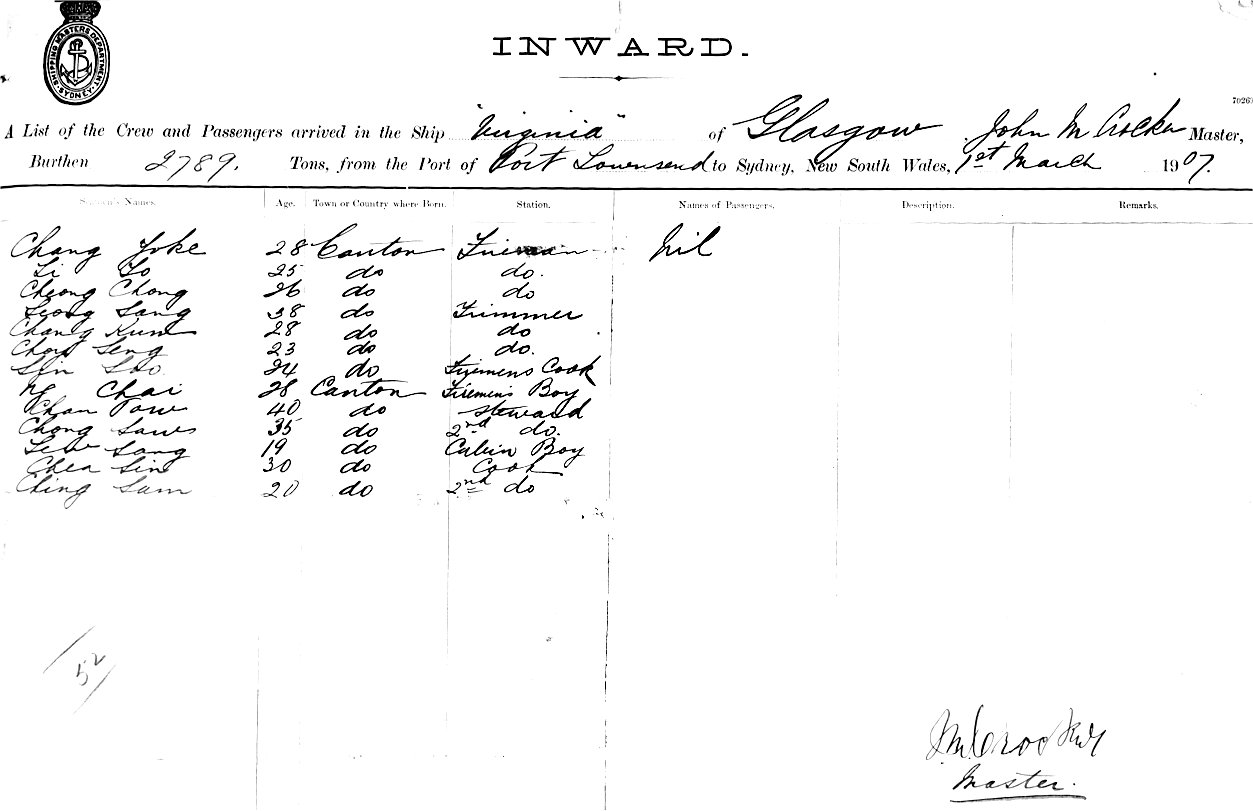 SHIPPING MASTERS DEPARTMENT
SYDNEY
INWARD.
7026
A List of the Crew and Passengers arrived in the Ship "Virginia" of Glasgow, John M Master,
Burthen 2789. Tons, from the Port of Port Townsend to Sydney, New South Wales, 1st March 1907.
Seamen's Names. Age. Town or Country where Born. Station. Names of Passengers. Description. Remarks.
Chang Yoke 28 Canton Fireman Nil
Li 25 do do.
Cheong Chong 26 do do
Leong Sang 38 do Trimmer
Chang Kum 28 do do
Seng 23 do do.
24 do Firemens Cook
Ng Chai 28 Canton Firemens Boy
Chan 40 do Steward
Chong 35 do 2nd do.
Sang 19 do Cabin Boy
Sin 30 do Cook
Ching Sam 20 do 2nd do
52
Master.